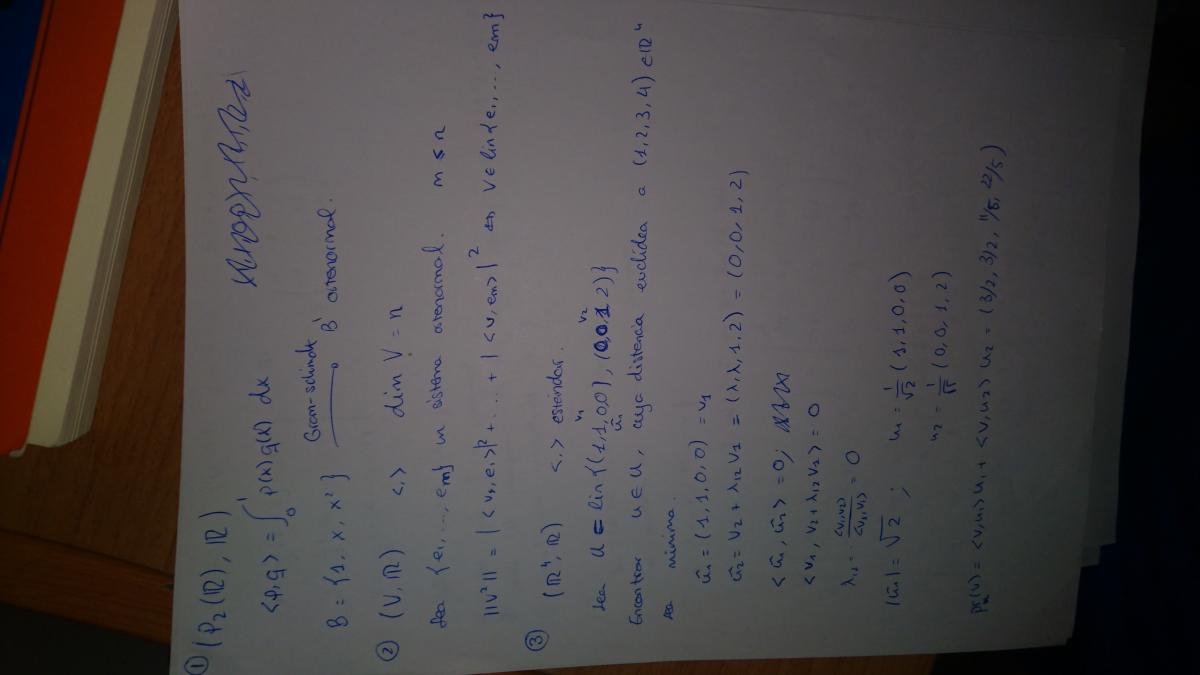 ① (P₂(ℝ), ℝ)
<p,q> = ∫₀¹ p(x) q(x) dx
B = {1, x, x²} Gram-schimdt → B' ortonormal.
② (V, ℝ) <,> dim V = n
Sea {e₁, ..., em} un sistema ortonormal. m ≤ n
||v²|| = |<v, e₁>|² + ... + |<v, em>|² ⇔ v ∈ lin{e₁, ..., em}
③ (ℝ⁴, ℝ) <,> estándar.
Sea U = lin{(1,1,0,0), (0,0,1,2)}
v₁ v₂
ũ₁
Encontrar u ∈ U, cuya distancia euclídea a (1,2,3,4) ∈ ℝ⁴
sea mínima.
ũ₁ = (1,1,0,0) = v₁
ũ₂ = v₂ + λ₁₂ v₁ = (λ, λ, 1, 2) = (0,0,1,2)
<ũ₁, ũ₂> = 0;
<v₁, v₂ + λ₁₂ v₁> = 0
λ₁₂ = - <v₁,v₂>/<v₁,v₁> = 0
|ũ₁| = √2 ; u₁ = 1/√2 (1,1,0,0)
u₂ = 1/√5 (0,0,1,2)
Pᵤ(v) = <v,u₁> u₁ + <v,u₂> u₂ = (3/2, 3/2, 11/5, 22/5)